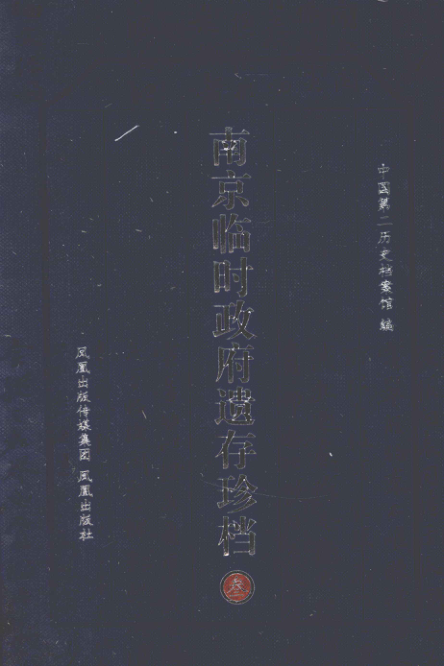 中国第二历史档案馆 编
南京临时政府遗存珍档
叁
凤凰出版传媒集团 凤凰出版社